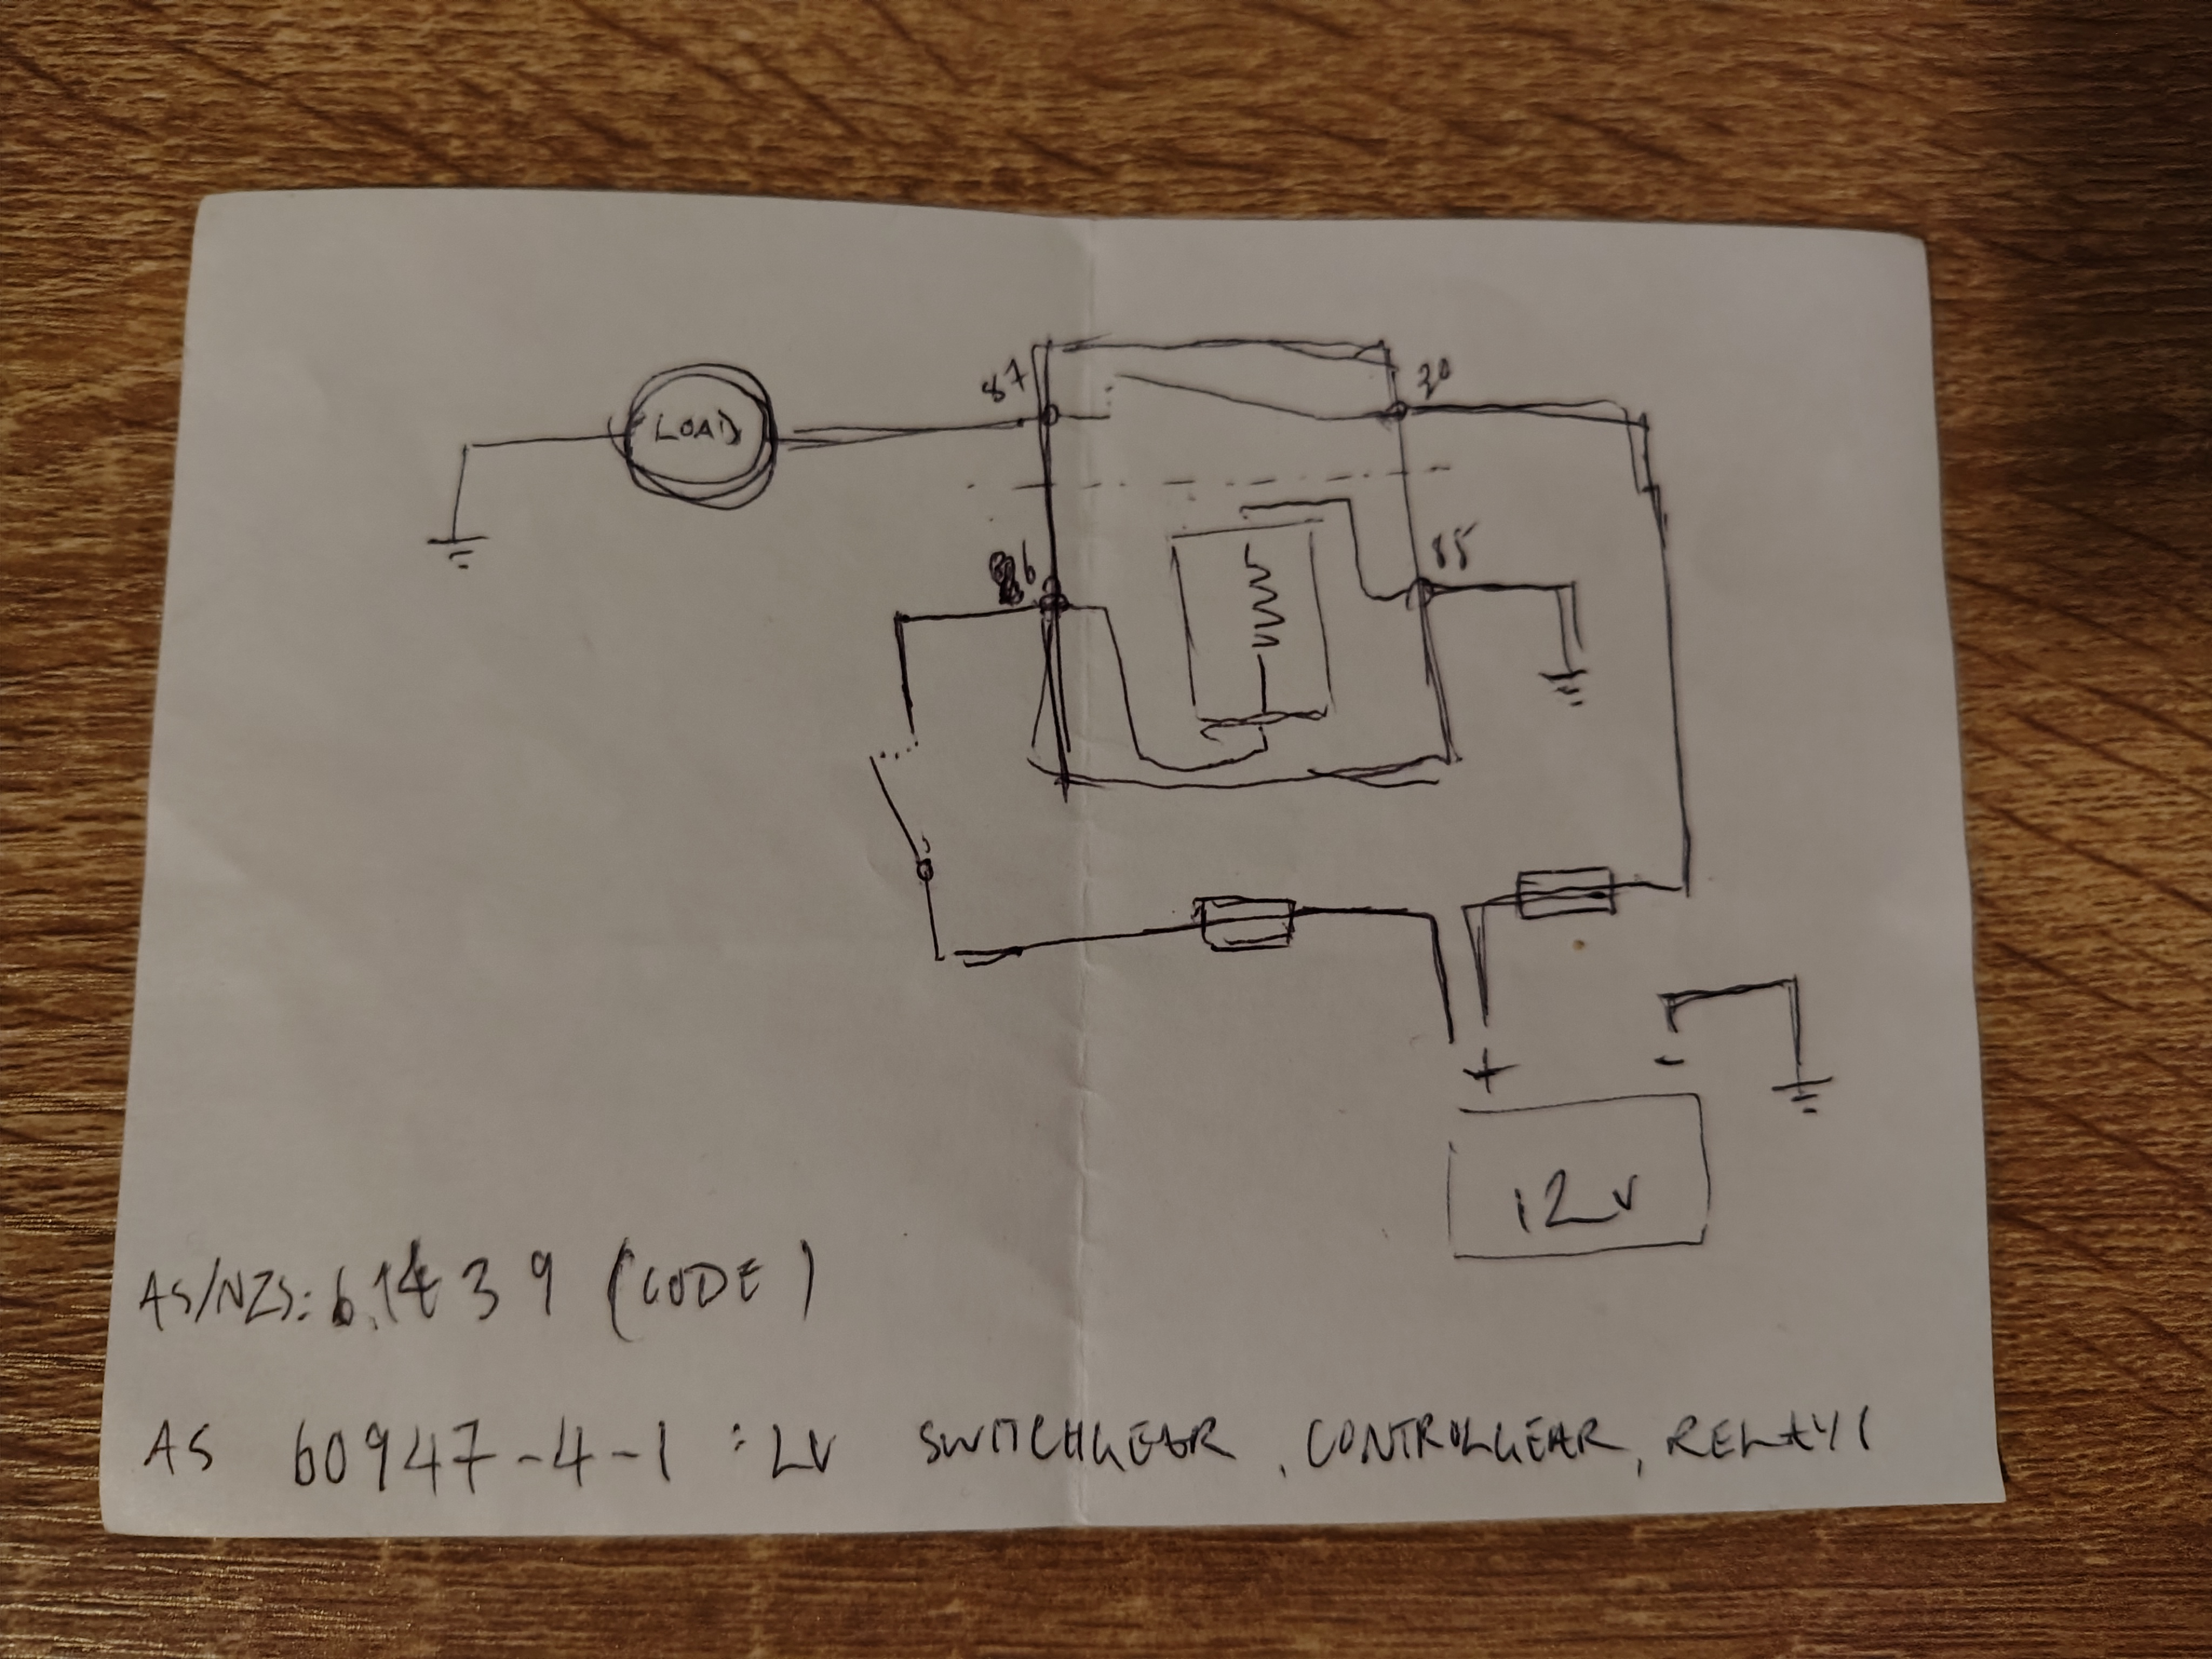 87
30
LOAD
86
85
+
-
12V
AS/NZS: 61439 (CODE)
AS 60947-4-1 : LV SWITCHGEAR, CONTROLGEAR, RELAYS